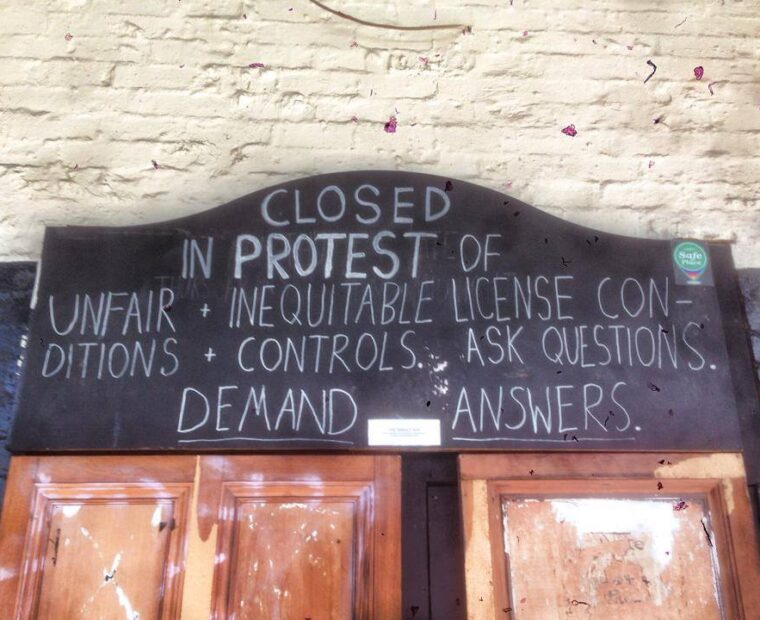 CLOSED
IN PROTEST OF
UNFAIR + INEQUITABLE LICENSE CON-
DITIONS + CONTROLS. ASK QUESTIONS.
DEMAND ANSWERS.
Safe
Place